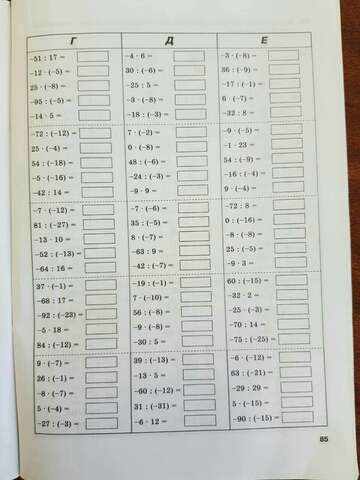 Г Д Е
–51 : 17 = –4 · 6 = –3 · (–8) =
–12 · (–5) = 30 : (–6) = 36 : (–9) =
25 · (–8) = –25 : 5 = –17 : (–1) =
–95 : (–5) = –3 · (–8) = 6 · (–7) =
–14 · 5 = –18 : (–3) = –32 : 8 =
–72 : (–12) = 7 · (–2) = –9 · (–5) =
25 · (–4) = 0 · (–8) = –1 · 23 =
54 : (–18) = 48 : (–6) = 54 : (–9) =
–5 · (–16) = –24 : (–3) = –16 : (–4) =
–42 : 14 = –9 · 9 = 9 · (–4) =
–7 · (–12) = –7 · (–6) = –72 : 8 =
81 : (–27) = 35 : (–5) = 0 : (–16) =
–13 · 10 = 8 · (–7) = –8 · (–8) =
–52 : (–13) = –63 : 9 = 25 : (–5) =
–64 : 16 = –42 : (–7) = –9 · 3 =
37 · (–1) = –19 : (–1) = 60 : (–15) =
–68 : 17 = 7 · (–10) = –32 · 2 =
–92 : (–23) = 56 : (–8) = –25 · (–3) =
–5 · 18 = –9 · (–8) = –70 : 14 =
84 : (–12) = –30 : 5 = –75 : (–25) =
9 · (–7) = 39 : (–13) = –6 · (–12) =
26 : (–1) = –13 · 5 = 63 : (–21) =
–8 · (–7) = –60 : (–12) = –29 : 29 =
5 · (–4) = 31 : (–31) = 5 · (–15) =
–27 : (–3) = –6 · 12 = –90 : (–15) =
85